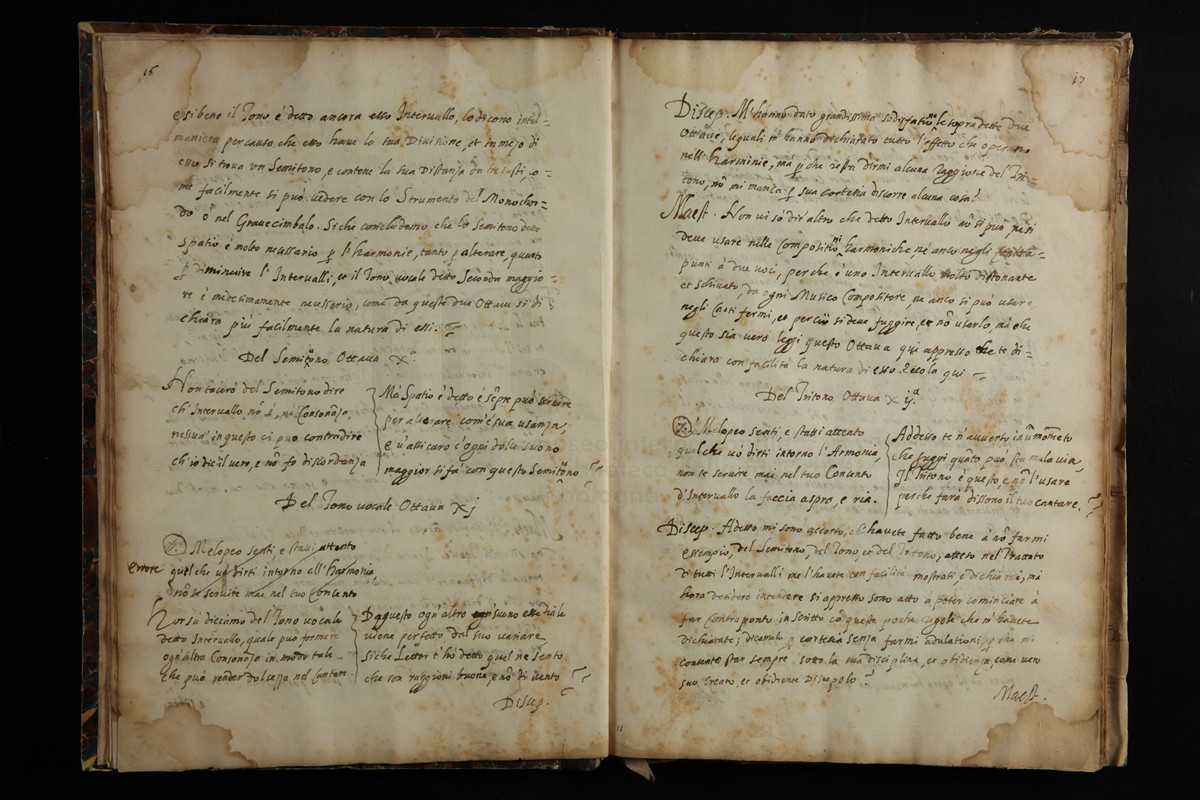 16
e si bene il Tono é detto ancora esso Intervallo, lo dicono intal=
maniera per causa che esso have la sua Divisione, et in mezo di
esso si trova un Semitono, e contene la sua Distanza da tre tasti, co=
me facilmente si può vedere con lo Strumento del Monochor=
do ò nel Gravecimbalo. Si che concludiamo che lo Semitono detto
spatio é molto necessario p l'harmonie, tanto p alterare, quanto
p diminuire l'Intervalli, et il Tono vocale detto Seconda maggio=
re é medesimamente necessario, come da queste due Ottave si di=
chiara più facilmente la natura di essi.
Del Semitono Ottava X.
Non tacerò del Semitono dire
ch'Intervallo nõ é, ne Consonanza,
nessun' in questo ci può contradire
ch'io dic'il vero, e nõ fo discordanza
Mà Spatio é detto é sẽpre può servire
per alterare com'é sua usanza,
e v'assicuro c'ogni dolce suono
maggior si fà con questo Semitõno
Del Tono vocale Ottava Xj
Melopeo senti e statti attento
Errore quel che vò dirti intorno all'harmonia,
nõ te servire mai nel tuo Concento
Horsu diciamo del Tono vocale
detto Intervallo, quale può formare
ogn'altra Consonanza in modo tale
che può render dolcezza nel Cantare
Da questo ogn'altro suono essentiale
viene perfetto, dal suo variare
Siche Lettor t'hò detto quel ne sento
che son raggioni buone, e nõ di vento
Discep.
17
Discep. M'hanno dato grandissima sodisfatio.ne le sopradette due
Ottave, le quali m'hanno dechiarato tutto l'effetto che operano
nell'harminie, mà p che resta dirmi alcuna raggione del Tri=
tono, nõ mi manca p sua cortesia discorre alcuna cosa?
Maest. Non vi sò dir'altro che detto Intervallo nõ si può, ne si
deve usare nelle Compositio.ni harmoniche, ne anco negli Contra=
punti à due voci, perche é uno Intervallo molto dissonante
et schivato, da ogni Musico Compositore ne anco si può usare
negli Canti fermi, et perciò si deve fuggire, et nõ usarlo, mà che
questo sia vero leggi questa Ottava qui appresso che te di=
chiara con facilità la natura di esso. Eccola qui
Del Tritono Ottava X ij.a
Melopeo senti, e statti attento
quel che vò dirti intorno l'Armonia,
non te servire mai nel tuo Concento
d'Intervallo la faccia aspro, e ria.
Addesso te n'avverto in ũ momẽto
che fuggi quãto può sta mala via,
Il Tritono é questo, e nõ l'usare
perche farà dissono il tuo cantare.
Discep. Adesso mi sono accorto, ch'havete fatto bene à nõ farmi
essempio, del Semitono, del Tono et del Tritono, atteso nel Trattato
di tutti l'Intervalli me l'havete con facilità mostrati, e dichiarati, mà
hora desidero intendere si appresso sono atto à poter cominciare à
far contraponto in scritto cõ queste poche regole che m'havete
dichiarate; dicamelo p cortesia senza farmi adulationi, p che mi
contente star sempre sotto la sua disciplina, et obidienza, come vero
suo creato, et obidiente Discepolo?
Maest.
11